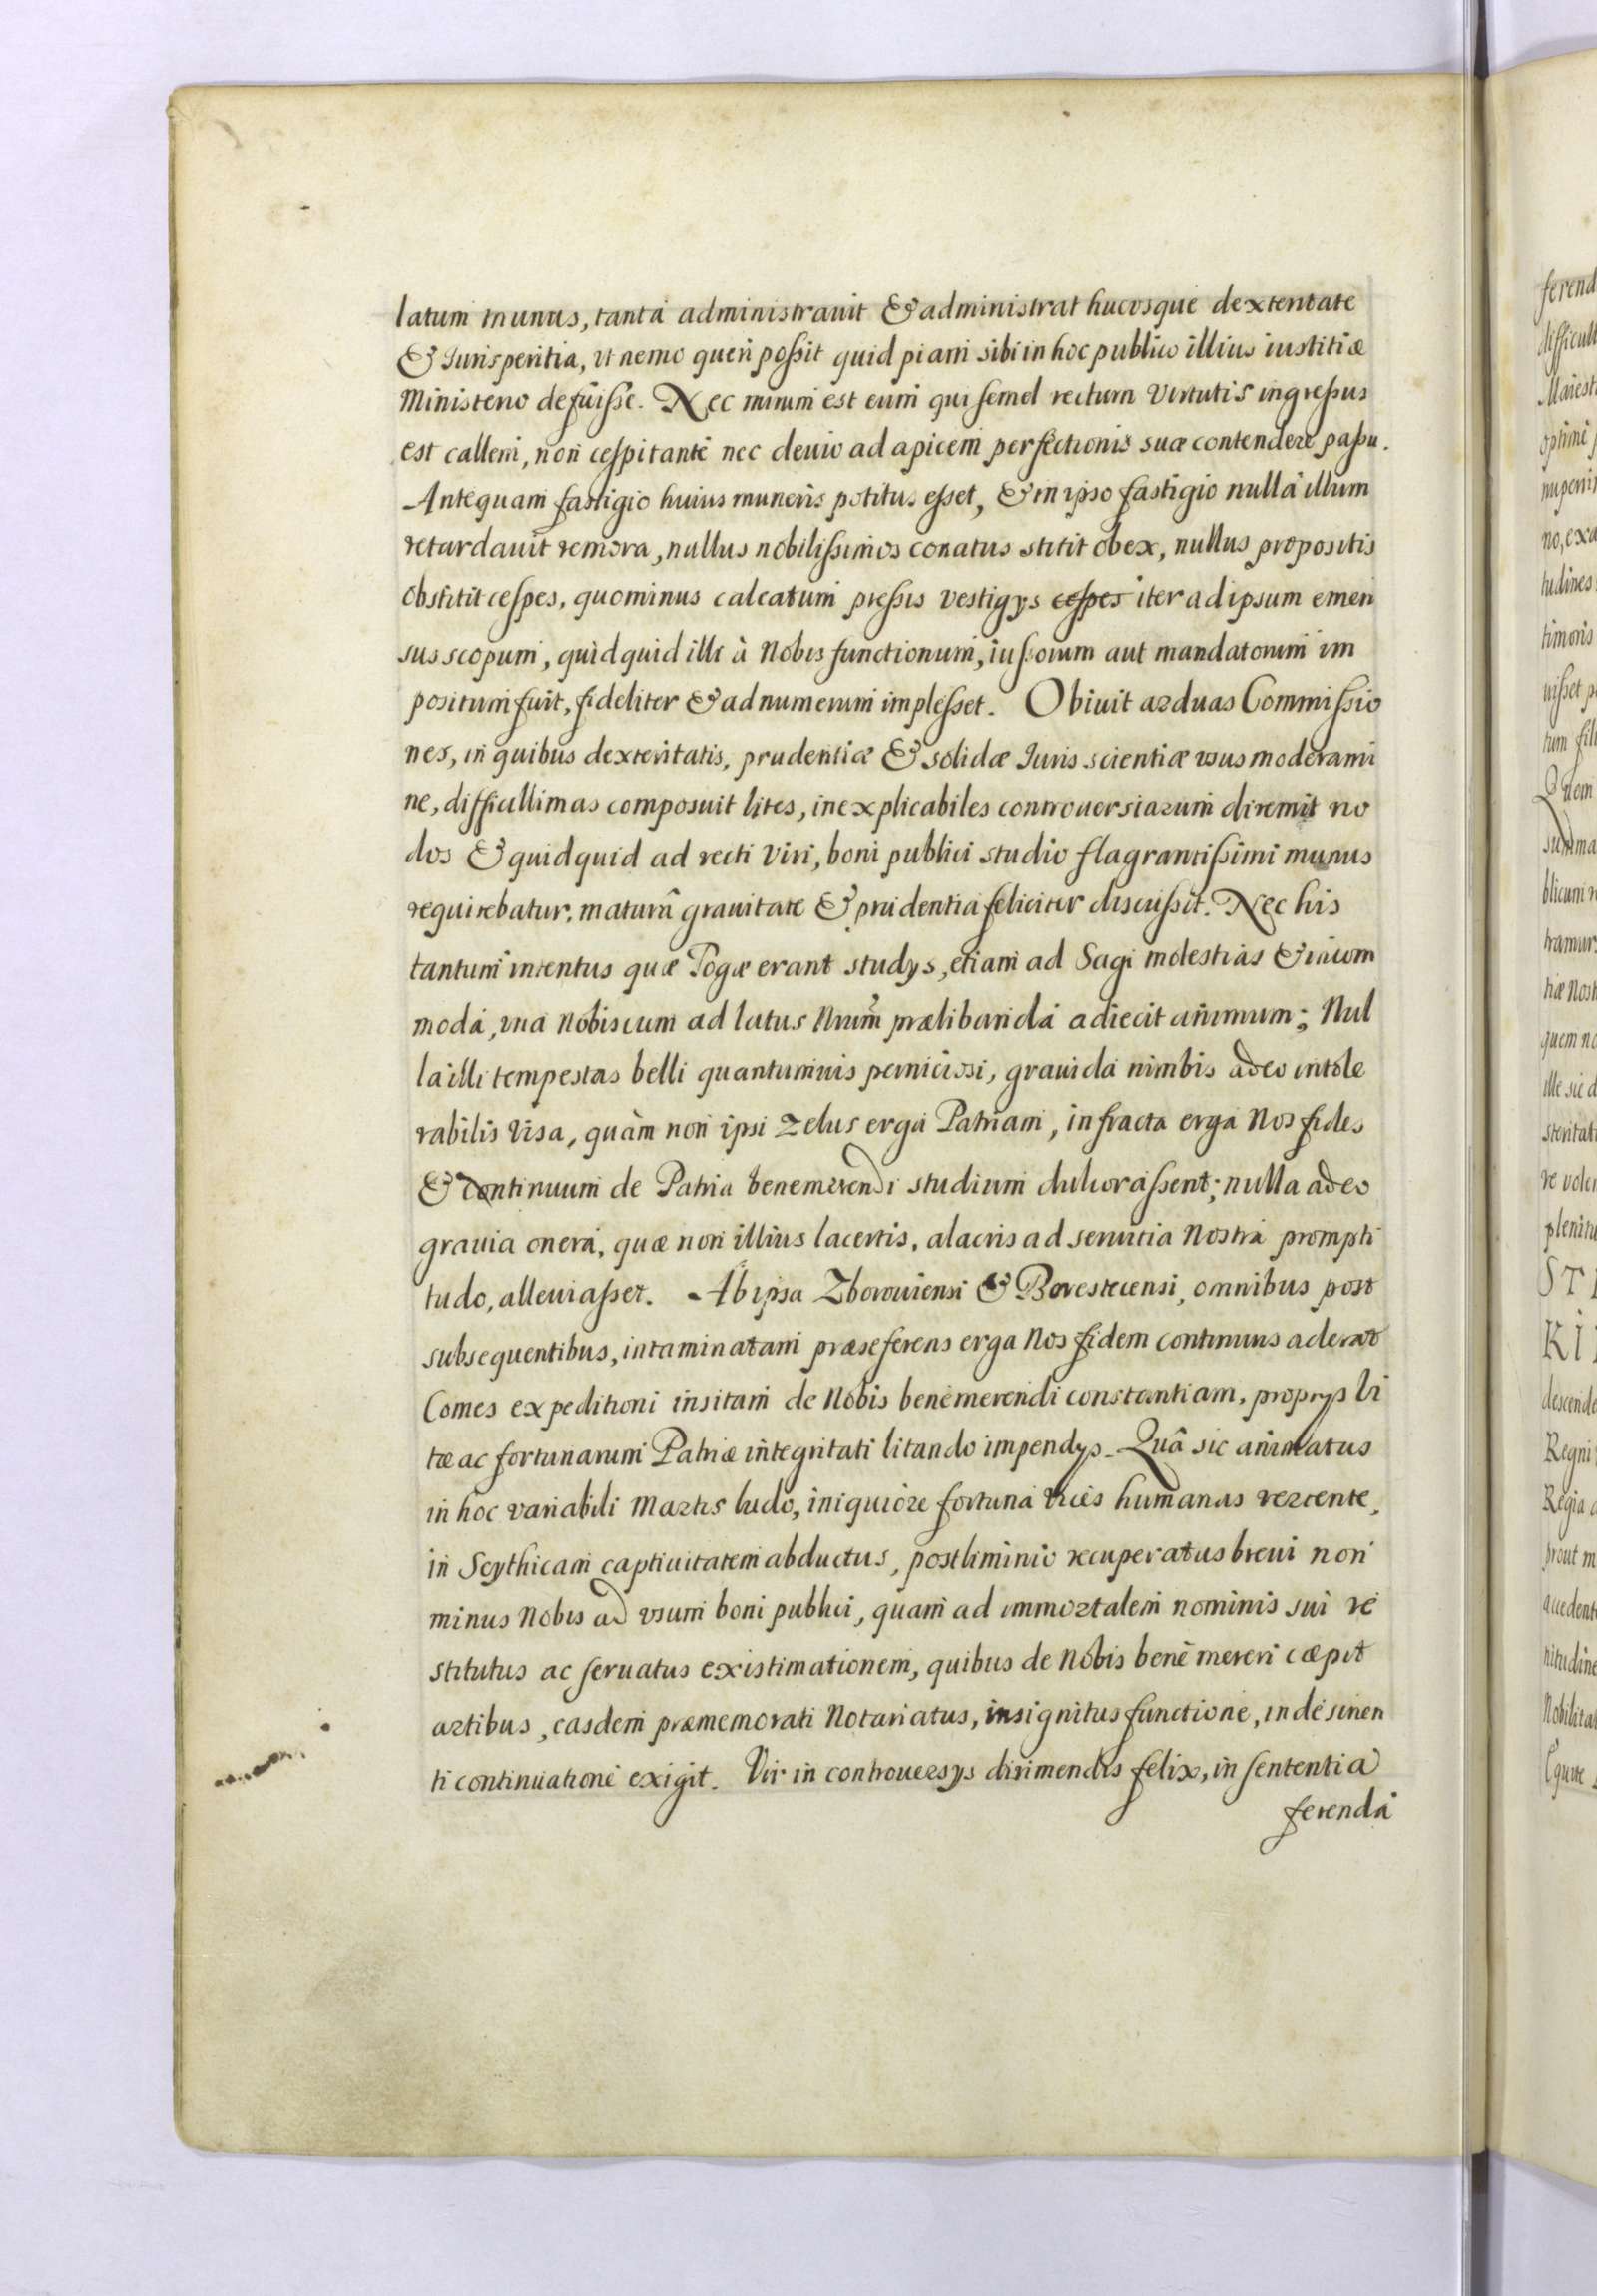 latum munus, tanta administrauit & administrat hucvsque dexteritate
& Iurisperitia, vt nemo queri poßit quidpiam sibi in hoc publico illius iustitiæ
Ministerio defuiſse. Nec mirum est eum qui semel rectum Virtutis ingreßus
est callem, non ceſpitante nec deuio ad apicem perfectionis suæ contendere paßu.
Antequam fastigio huius muneris potitus eſset, & in ipso fastigio nulla illum
retardauit remora, nullus nobilißimos conatus stitit obex, nullus propositis
obstitit ceſpes, quominus calcatum preßis vestigys ceſpes iter ad ipsum emen
sus scopum, quidquid illi à Nobis functionum, iuſsorum aut mandatorum im
positum fuit, fideliter & ad numerum impleſset. Obiuit arduas Commißio
nes, in quibus dexteritatis, prudentiæ & solidæ Iuris scientiæ vsus moderami
ne, difficillimas composuit lites, inexplicabiles controuersiarum diremit no
dos & quidquid ad recti Viri, boni publici studio flagrantißimi munus
requirebatur, maturâ grauitate & prudentia feliciter discußit. Nec his
tantum intentus quæ Togæ erant studys, etiam ad Sagi molestias & incom
moda, vna Nobiscum ad latus Nrum prælibanda adiecit animum; Nul
la illi tempestas belli quantumuis perniciosi, grauida nimbis adeo intole
rabilis visa, quàm non ipsi zelus erga Patriam, infracta erga Nos fides
& continuum de Patria benemerendi studium dulcoraſsent; nulla adeo
grauia onera, quæ non illius lacertis, alacris ad seruitia Nostra prompti
tudo, alleuiaſset. Ab ipsa Zborouiensi & Berestecensi, omnibus post
subsequentibus, intaminatam præseferens erga Nos fidem continuus aderat
Comes expeditioni insitam de Nobis benemerendi constantiam, proprys Vi
tæ ac fortunarum Patriæ integritati litando impendys. Quâ sic animatus
in hoc variabili Martis ludo, iniquiore fortuna vices humanas vertente,
in Scythicam captiuitatem abductus, postliminio recuperatus breui non
minus Nobis ad vsum boni publici, quam ad immortalem nominis sui re
stitutus ac ſeruatus existimationem, quibus de Nobis benè mereri cæpit
artibus, easdem præmemorati Notariatus, insignitus functione, indesinen
ti continuatione exigit. Vir in controuersys dirimendis felix, in ſententia
ferenda